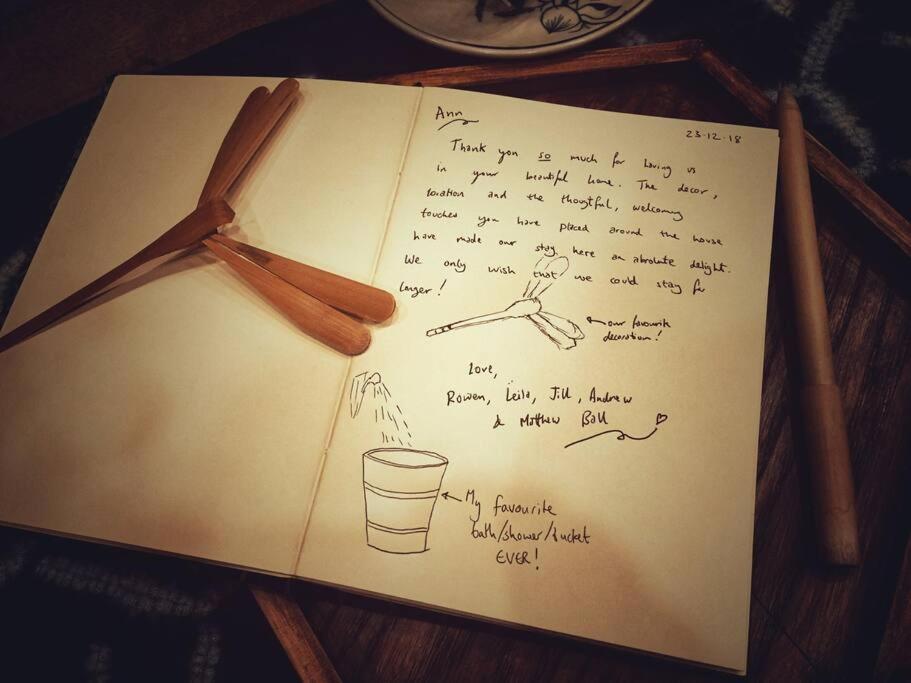 Ann
23-12-18
Thank you so much for having us
in your beautiful home. The decor,
location and the thougtful, welcoming
touches you have placed around the house
have made our stay here an absolute delight.
We only wish that we could stay for
longer!
our favourite
decoration!
Love,
Rowen, Leila, Jill, Andrew
& Matthew Ball
My favourite
bath/shower/bucket
EVER!